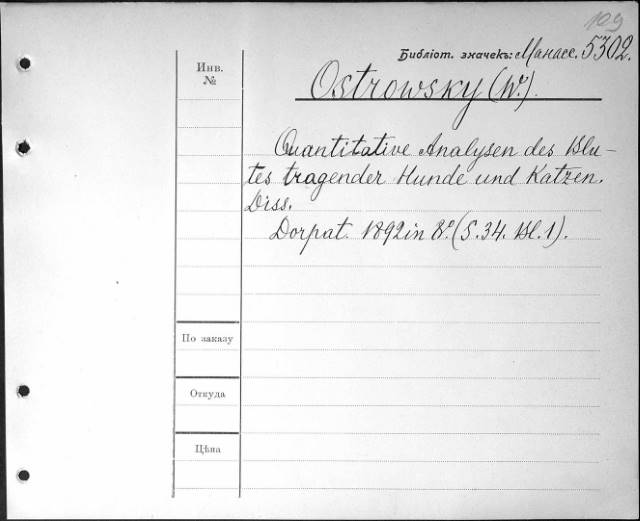 109
Библіот. значекъ: Манасс. 5302.
Инв.
№
Ostrowsky (W.).
Quantitative Analysen des Blu-
tes tragender Hunde und Katzen.
Diss.
Dorpat. 1892 in 8º. (S. 34. Bl. 1).
По заказу
Откуда
Цѣна